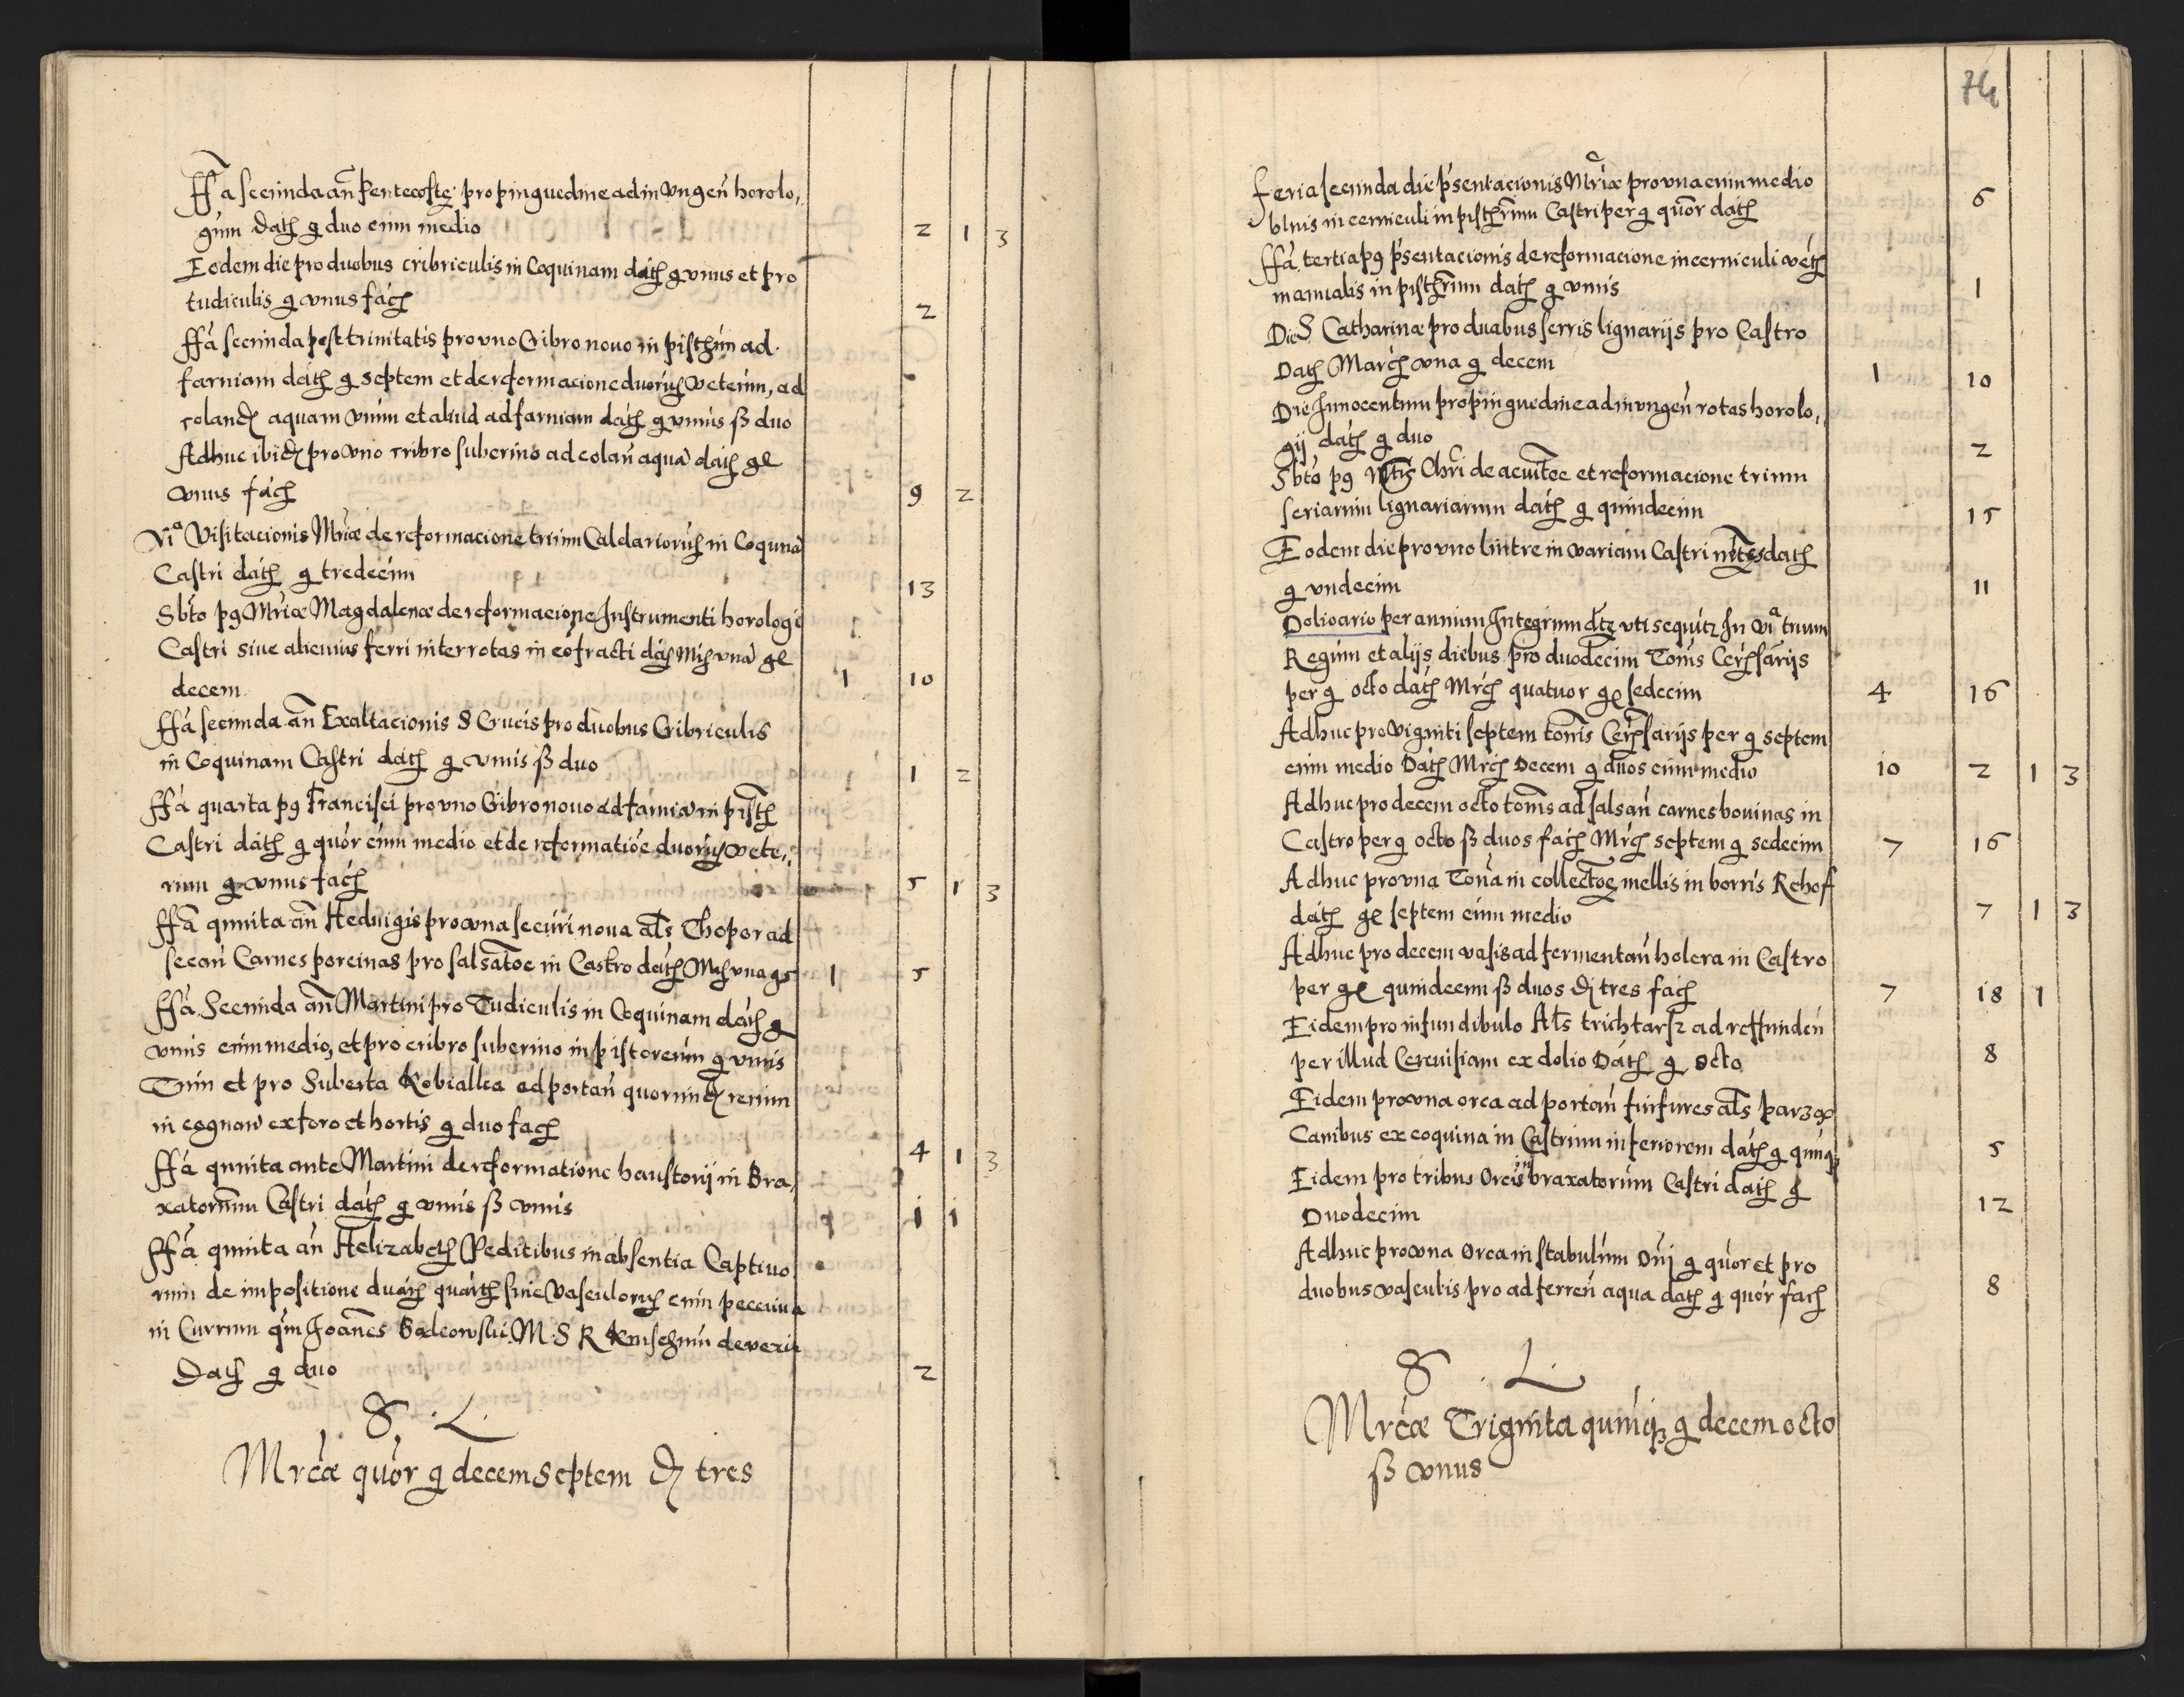 ffa secunda an Pentecoste pro pinguedine ad inungen horolo,
gium dath g duo cum medio 2 1 3
Eodem die pro duobus cribriculis in Coquinam dath g vnus et pro
tudiculis g vnus fach 2
ffa secunda post trinitatis pro vno Cribro nouo in pisthm ad
farniam dath g septem et de reformacione duoruch veterum, ad
coland aquam vnum et aliud ad farniam dath g vnus ß duo
Adhuc ibid pro vno cribro suberino ad colan aqua dath gl
vnus fach 9 2
Vi^a Visitacionis Mriæ de reformacione trium Caldarioruch in Coquina
Castri dath g tredecim 13
Sbto pg Mriæ Magdalenæ de reformacione Instrumenti horologi
Castri siue alicuius ferri inter rotas in eo fracti dath Mrch vna gl
decem 1 10
ffa secunda an Exaltacionis S Crucis pro duobus Cribriculis
in Coquinam Castri dath g vnus ß duo 1 2
ffa quarta pg Francisci pro vno Cribro nouo ad farnia in pisth
Castri dath g quor cum medio et de reformatioe duoruch vete,
rum g vnus fach 5 1 3
ffa quinta an Heduigis pro vna securi noua als Thopor ad
secan Carnes porcinas pro salsatoe in Castro dath Mrch vna g 5 1 5
ffa Secunda an Martini pro Tudiculis in Coquinam dath g
vnus cum medio, et pro cribro suberino in pistorium g vnus
Tum et pro Suberta Kobialka ad portan quorund rerum
in cognam ex foro et hortis g duo fach 4 1 3
ffa quinta ante Martini de reformatione haustorij in Bra,
xatorium Castri dath g vnus ß vnus 1 1
ffa quinta an Helizabeth Peditibus in absentia Captiuo
rum de impositione duarch quarth siue Vasculoruch cum pecunia
in Currum qm Joannes Sadcowski M S R deverit
Dath g duo 2
S . L .
Mrcæ quor g decem Septem d tres
74
feria secunda die psentacionis Mriæ pro vna cum medio
blius in cerniculi in pisthrium Castri per g quor dath 6
ffa tertia pg psentacionis de reformacione incerniculi veth
manualis in pisthrium dath g vnus 1
Die S Catharinæ pro duabus serris lignarijs pro Castro
Dath March vna g decem 1 10
Die Innocentum pro pinguedine ad inungen rotas horolo,
gij dath g duo 2
Sbto pg Chri de acuitoe et reformacione trium
serrarum lignariarum dath g quindecim 15
Eodem die pro vno lintre in variam Castri dath
g vndecim 11
Doliario per annum Integrum dte vti sequitz In Vi^a trium
Regum et alijs diebus pro duodecim Tonis Cerchsarijs
per g octo dath Mrch quatuor gl sedecim 4 16
Adhuc pro viginti septem tonis Cerchsarijs per g septem
cum medio Dath Mrch Decem g duos cum medio 10 2 1 3
Adhuc pro decem octo tonis ad salsan carnes bouinas in
Castro per g octo ß duos fach Mrch septem g sedecim 7 16
Adhuc pro vna Tona in collectoe mellis in borris Rehof
dath gl septem cum medio 7 1 3
Adhuc pro decem vasis ad fermentan holera in Castro
per gl quindecim ß duos d tres fach 7 18 1
Eidem pro infundibulo Als trichtarz ad reffunden
per illud Cereuisiam ex dolio Dath g octo 8
Eidem pro vna orca ad portan furfures als parzę
Canibus ex coquina in Castrum inferiorem dath g quinq 5
Eidem pro tribus Orcis in braxatorium Castri dath g
Duodecim 12
Adhuc pro vna Orca in stabulum Dni g quor et pro
duobus vasculis pro adferren aqua dath g quor fach 8
S . L .
Mrcæ Triginta quinq g decem octo
ß vnus